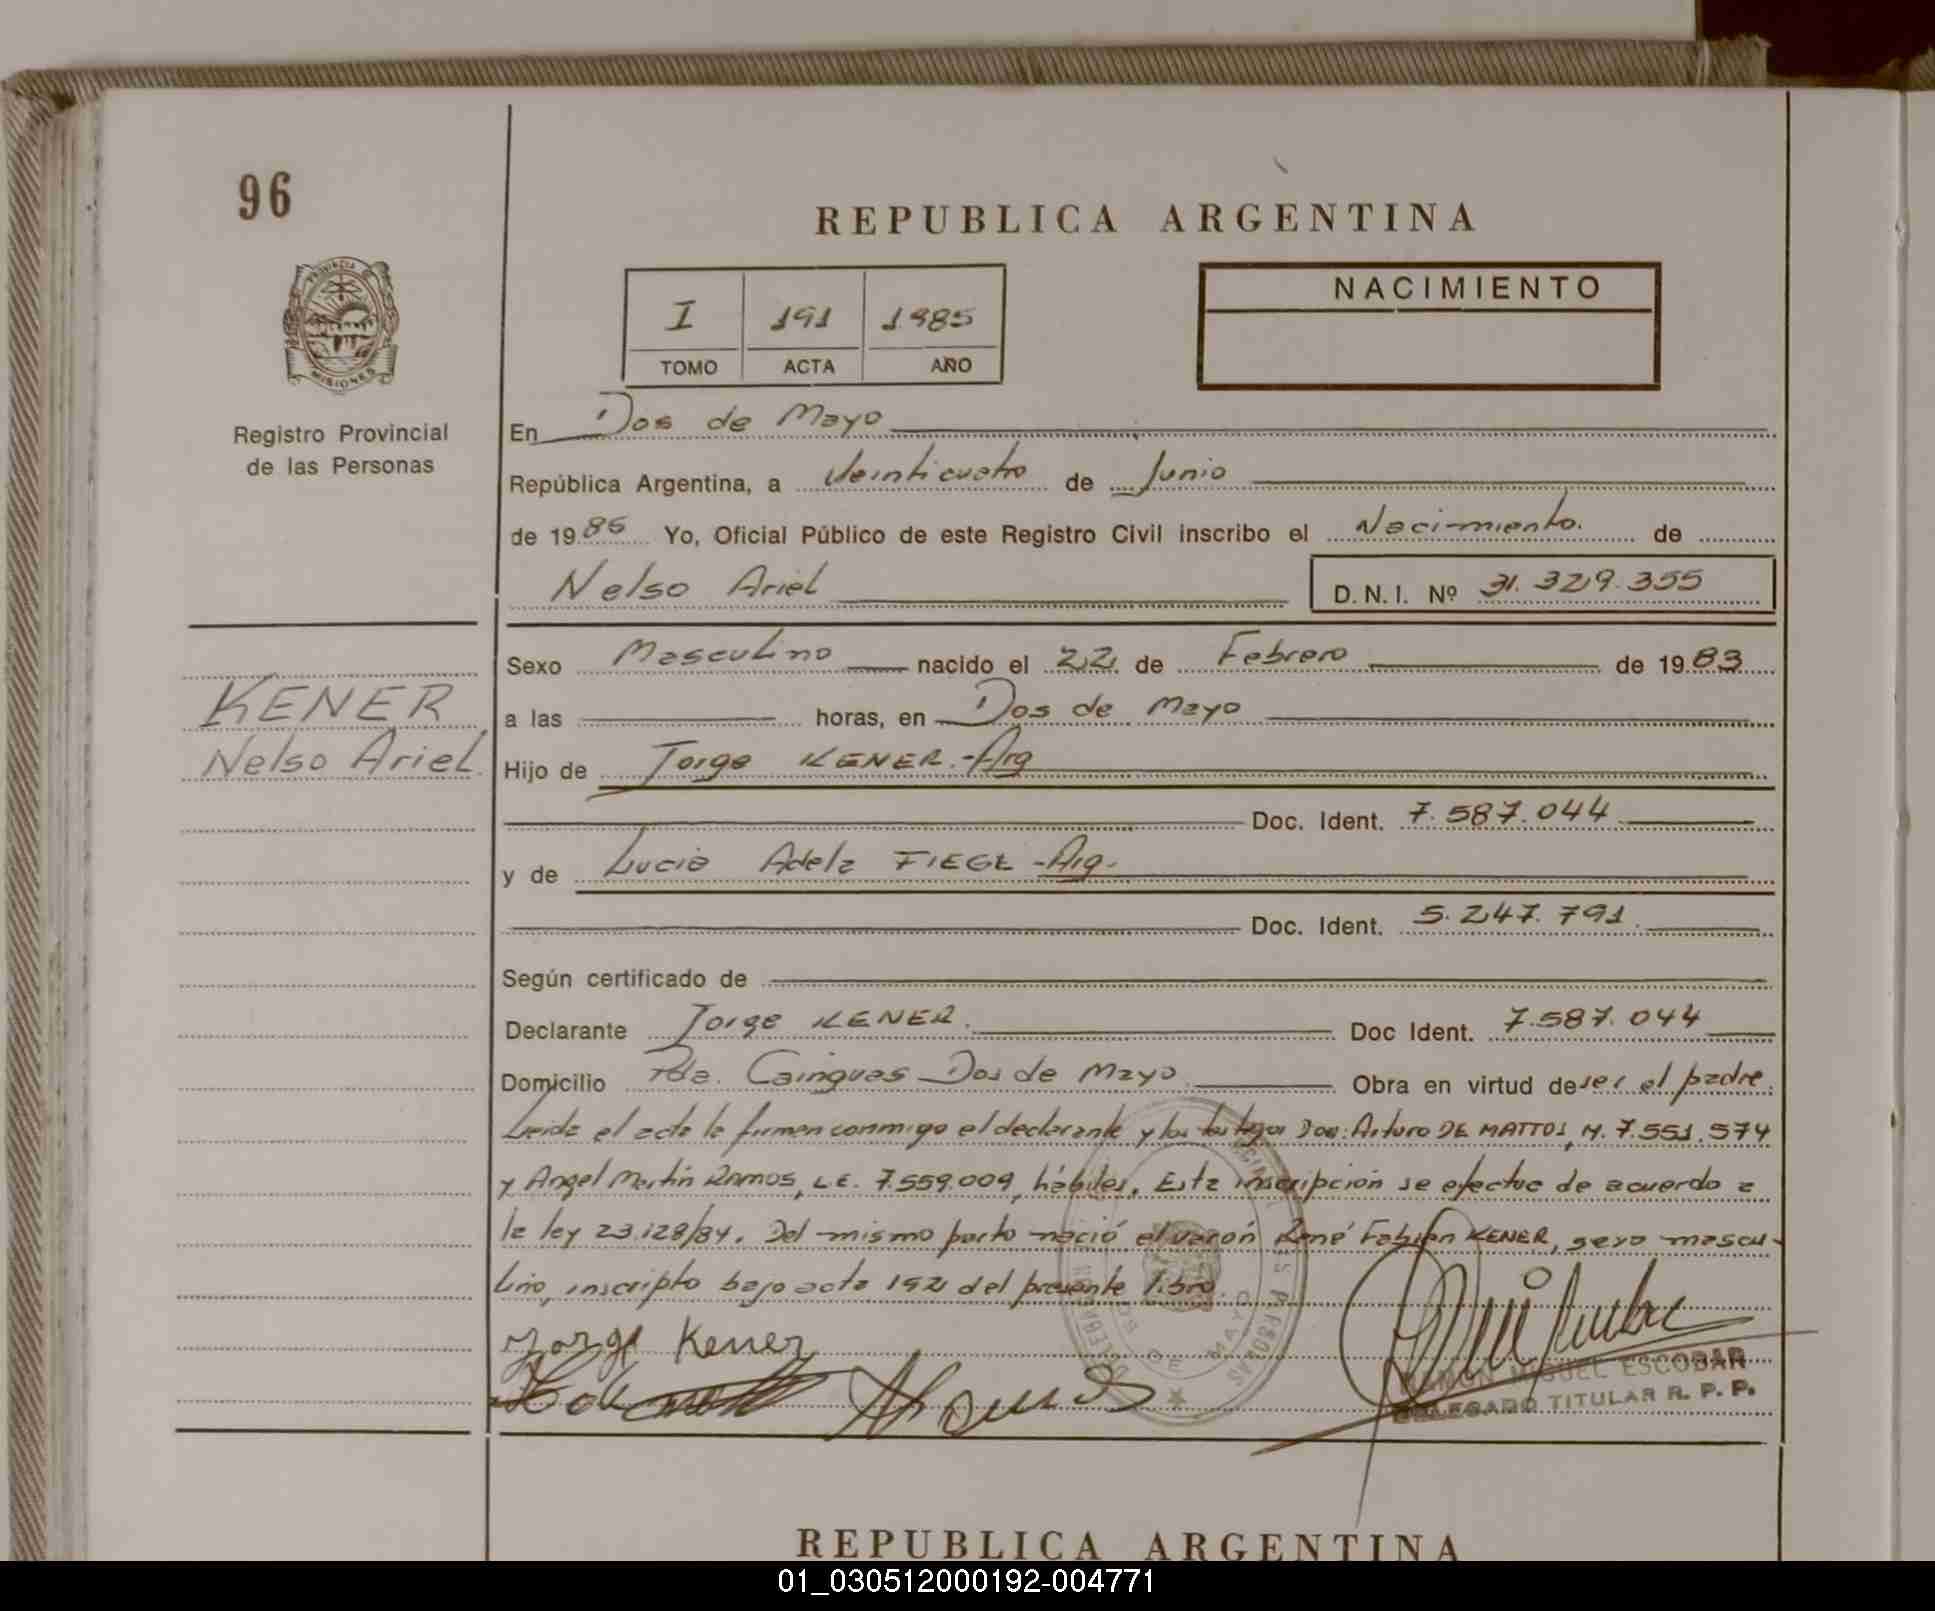 96
REPUBLICA ARGENTINA
PROVINCIA DE
MISIONES
Registro Provincial
de las Personas
I 191 1985
TOMO ACTA AÑO
NACIMIENTO
En Dos de Mayo
República Argentina, a Veinticuatro de Junio
de 1985 Yo, Oficial Público de este Registro Civil inscribo el Nacimiento. de
Nelso Ariel D.N.I. Nº 31.329.355
Sexo Masculino nacido el 22 de Febrero de 1983
KENER
Nelso Ariel
a las horas, en Dos de Mayo
Hijo de Jorge KENER.-Arg
Doc. Ident. 7.587.044
y de Lucia Adela FIEGE -Arg.
Doc. Ident. 5.247.791.
Según certificado de
Declarante Jorge KENER. Doc Ident. 7.587.044
Domicilio Pda. Cainguas Dos de Mayo Obra en virtud de ser el padre.
Leida el acta la firman conmigo el declarante y los testigos Don: Arturo DE MATTOS, M. 7.551.574
y Angel Martin RAMOS, L.E. 7.559.009, hábiles. Esta inscripción se efectua de acuerdo a
la ley 23.128/84. Del mismo parto nació el varón René Fabián KENER, sexo mascu-
lino, inscripto bajo acta 192 del presente libro.
Jorge Kener
RAMON MIGUEL ESCOBAR
DELEGADO TITULAR R. P. P.
DOS DE MAYO
REPUBLICA ARGENTINA
01_030512000192-004771